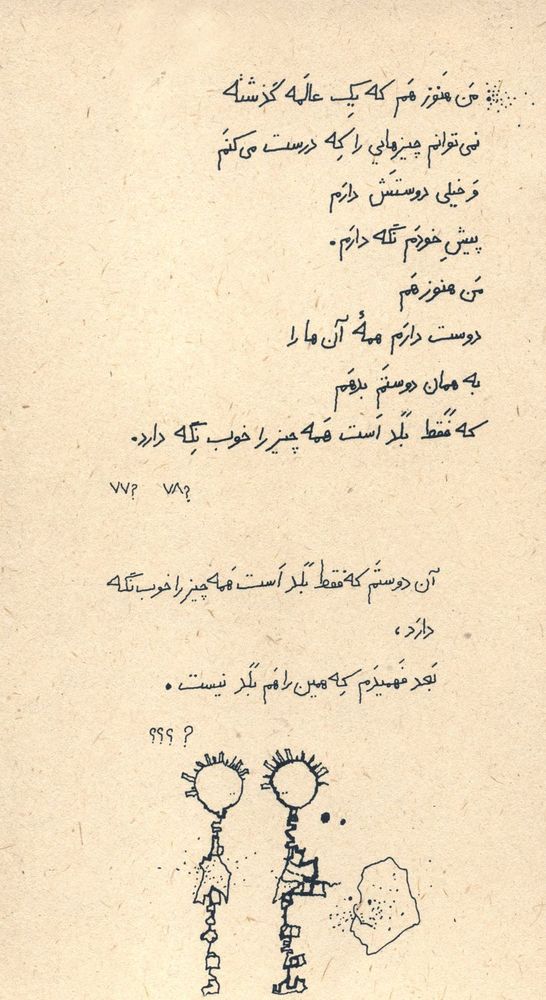 مَن هَنوز هَم که یِک عالَمه گُذَشته
نِمی‌توانَم چیزهایی را کِه دُرست می‌کنَم
وَ خیلی دوستَش دارَم
پیشِ خودَم نگَه دارَم.
مَن هنوز هَم
دوست دارَم همهٔ آن ها را
به همان دوستَم بدهَم
که فَقَط بَلَد اَست هَمه چیز را خوب نِگَه دارد.
۷۷؟ ۷۸؟
آن دوستَم که فقط بَلَد اَست هَمه چیز را خوب نگَه
دارَد،
بَعد فَهمیدَم کِه همین را هَم بَلَد نیست.
؟؟؟ ?